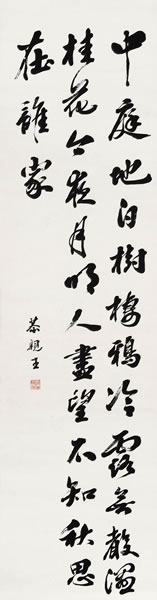 中庭地白樹棲鴉冷露無聲濕
桂花今夜月明人盡望不知秋思
在誰家
恭親王